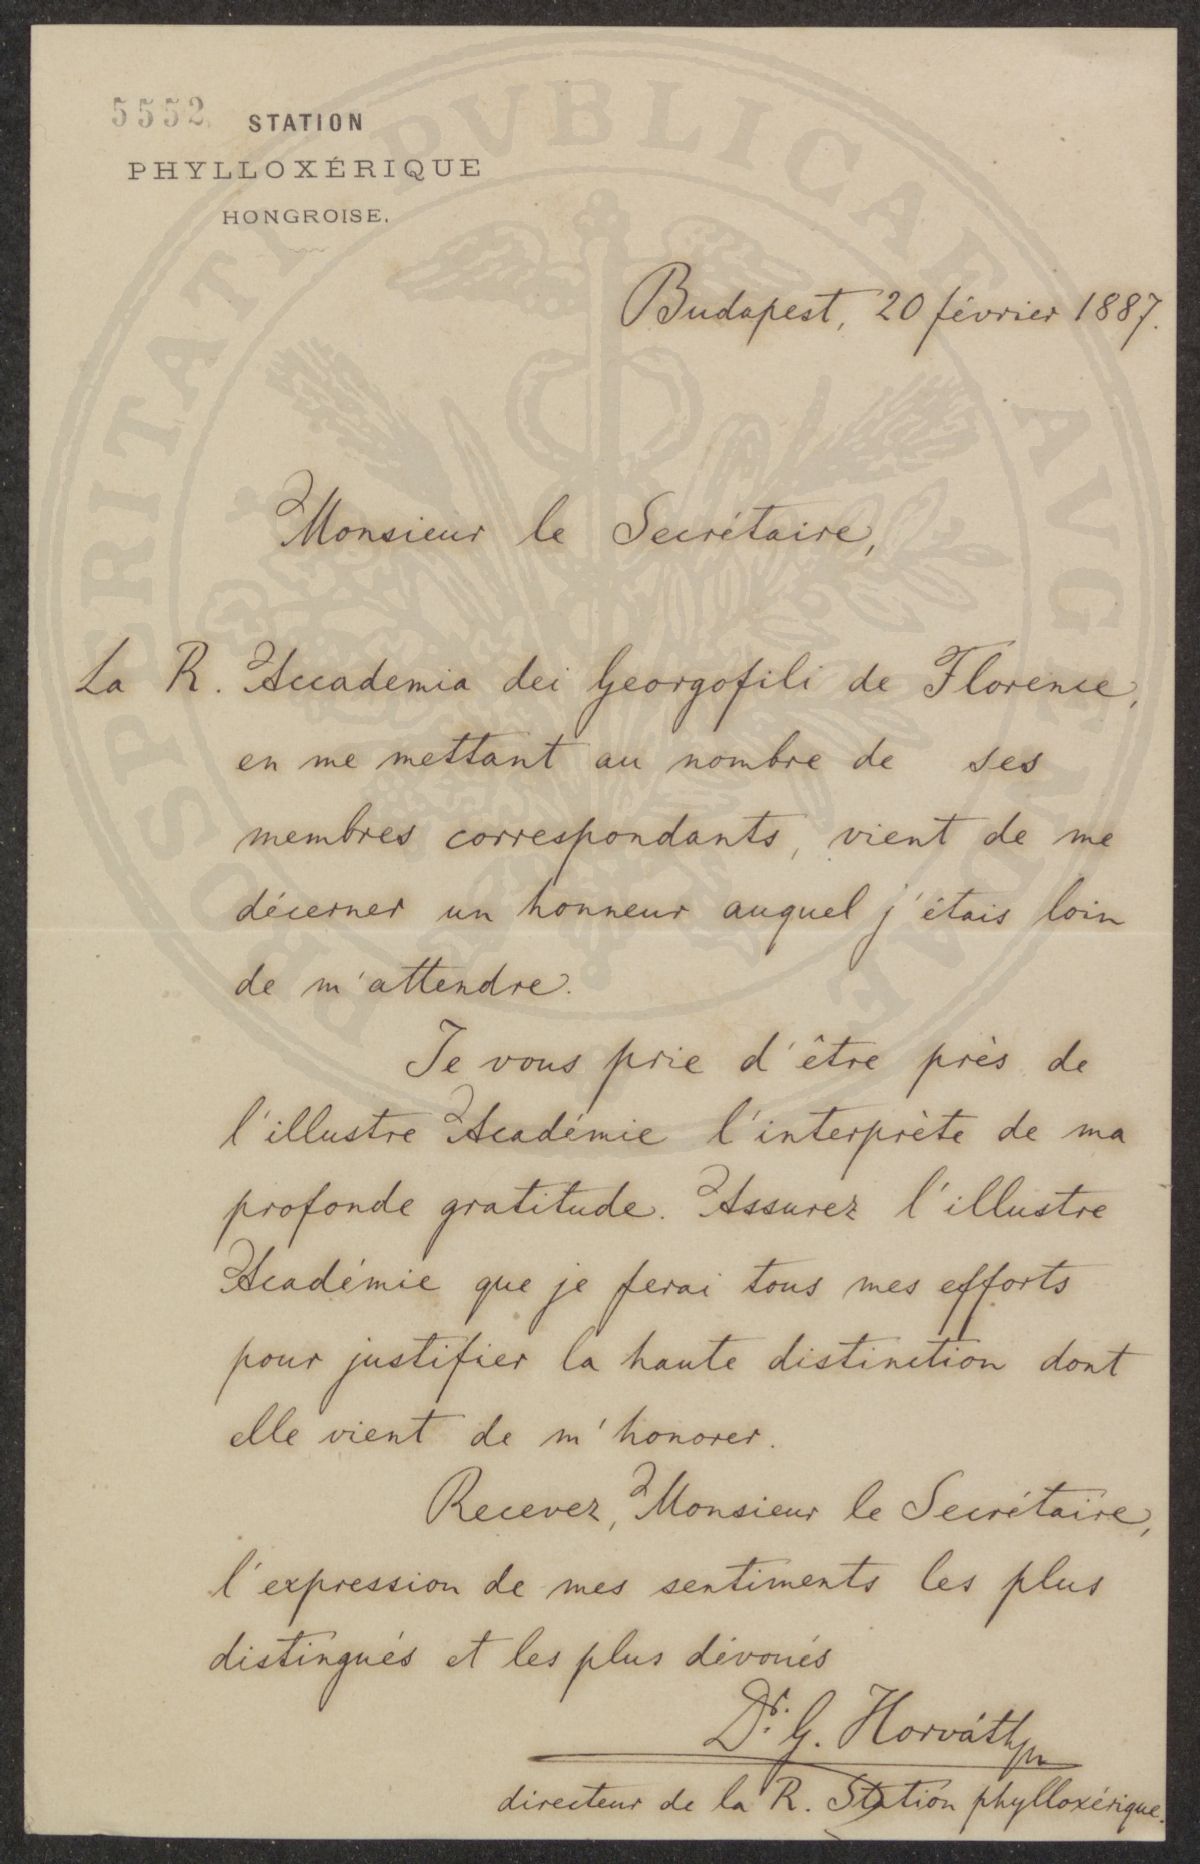 5552
STATION
PHYLLOXÉRIQUE
HONGROISE.
PROSPERITATI PVBLICAE AVGENDAE
Budapest, 20 février 1887.
Monsieur le Secrétaire,
La R. Accademia dei Georgofili de Florence,
en me mettant au nombre de ses
membres correspondants, vient de me
décerner un honneur auquel j'étais loin
de m'attendre.
Je vous prie d'être près de
l'illustre Académie l'interprète de ma
profonde gratitude. Assurez l'illustre
Académie que je ferai tous mes efforts
pour justifier la haute distinction dont
elle vient de m'honorer.
Recevez, Monsieur le Secrétaire,
l'expression de mes sentiments les plus
distingués et les plus dévoués
Dr. G. Horváth
directeur de la R. Station phylloxérique.